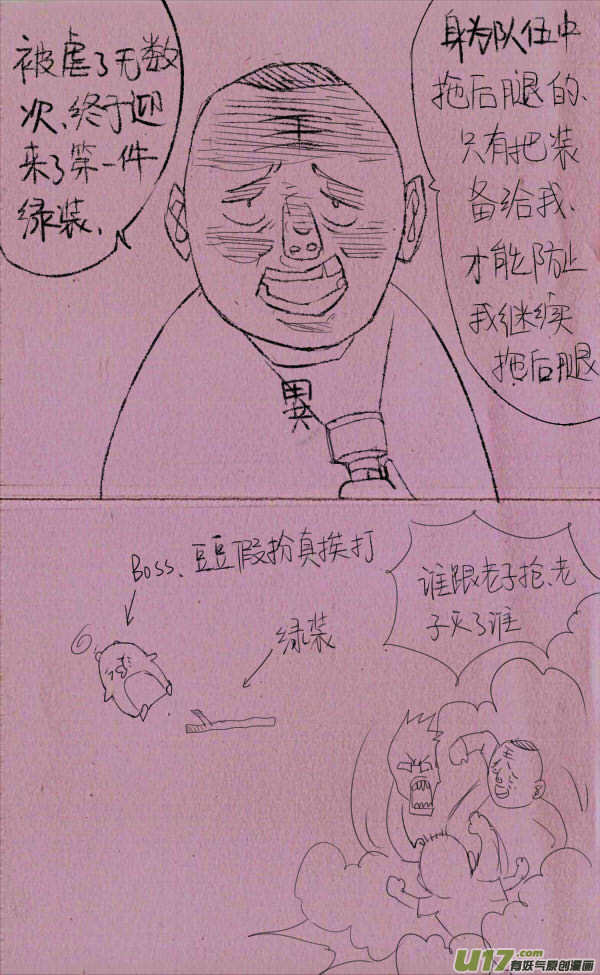 身为队伍中
拖后腿的、
只有把装
备给我、
才能防止
我继续
拖后腿
被虐了无数
次、终于迎
来了第一件
绿装、
王
異
Boss、豆豆假扮真挨打
绿装
谁跟老子抢、老
子灭了谁
王
U17.com
有妖气原创漫画